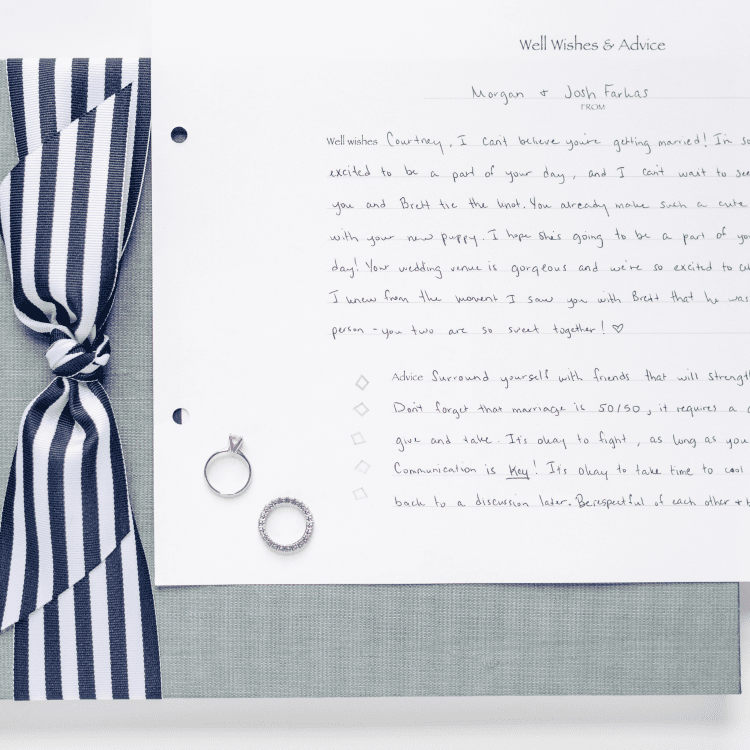 Well Wishes & Advice
Morgan + Josh Farkas
FROM
Well wishes Courtney, I can't believe you're getting married! I'm so
excited to be a part of your day, and I can't wait to see
you and Brett tie the knot. You already make such a cute
with your new puppy. I hope she's going to be a part of
day! Your wedding venue is gorgeous and we're so excited to
I knew from the moment I saw you with Brett that he was
person - you two are so sweet together! ♡
Advice Surround yourself with friends that will
Don't forget that marriage is 50/50, it requires a
give and take. It's okay to fight, as long as you
Communication is Key! It's okay to take time to cool
back to a discussion later. Be respectful of each other +